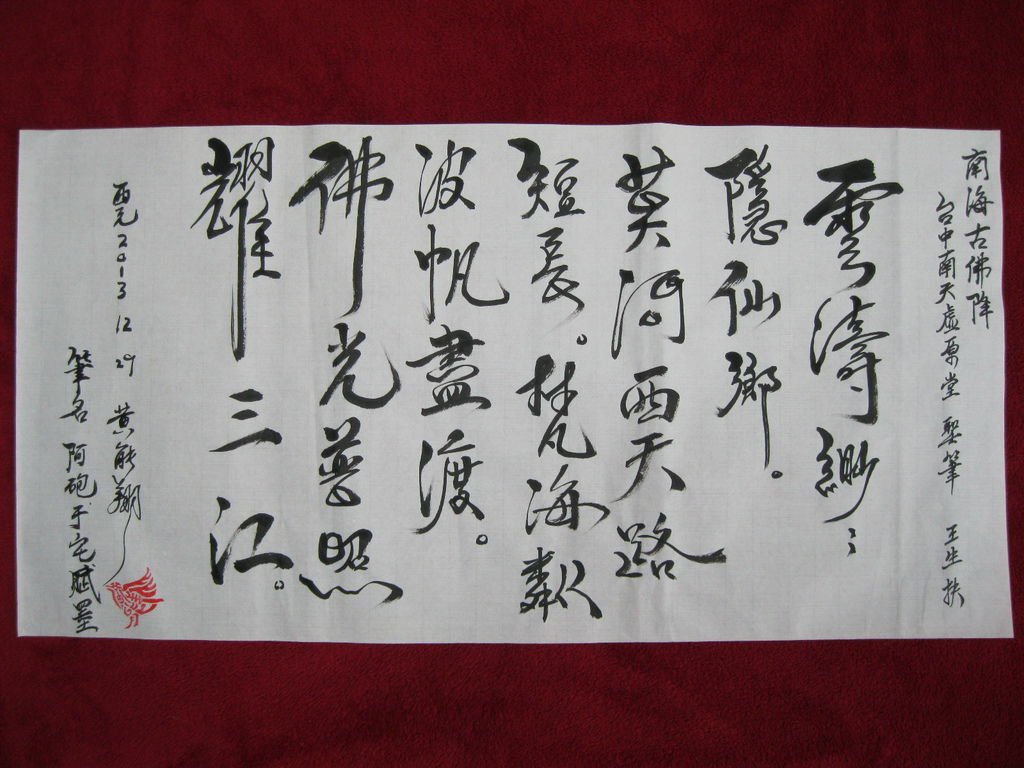 南海古佛降
台中南天虛原堂 聖筆 王生扶
雲濤渺〻
隱仙鄉。
莫問西天路
短長。梵海
波帆盡渡。
佛光普照
耀三江。
西元2013 12 29 黃能翔
筆名阿砲于宅賦墨